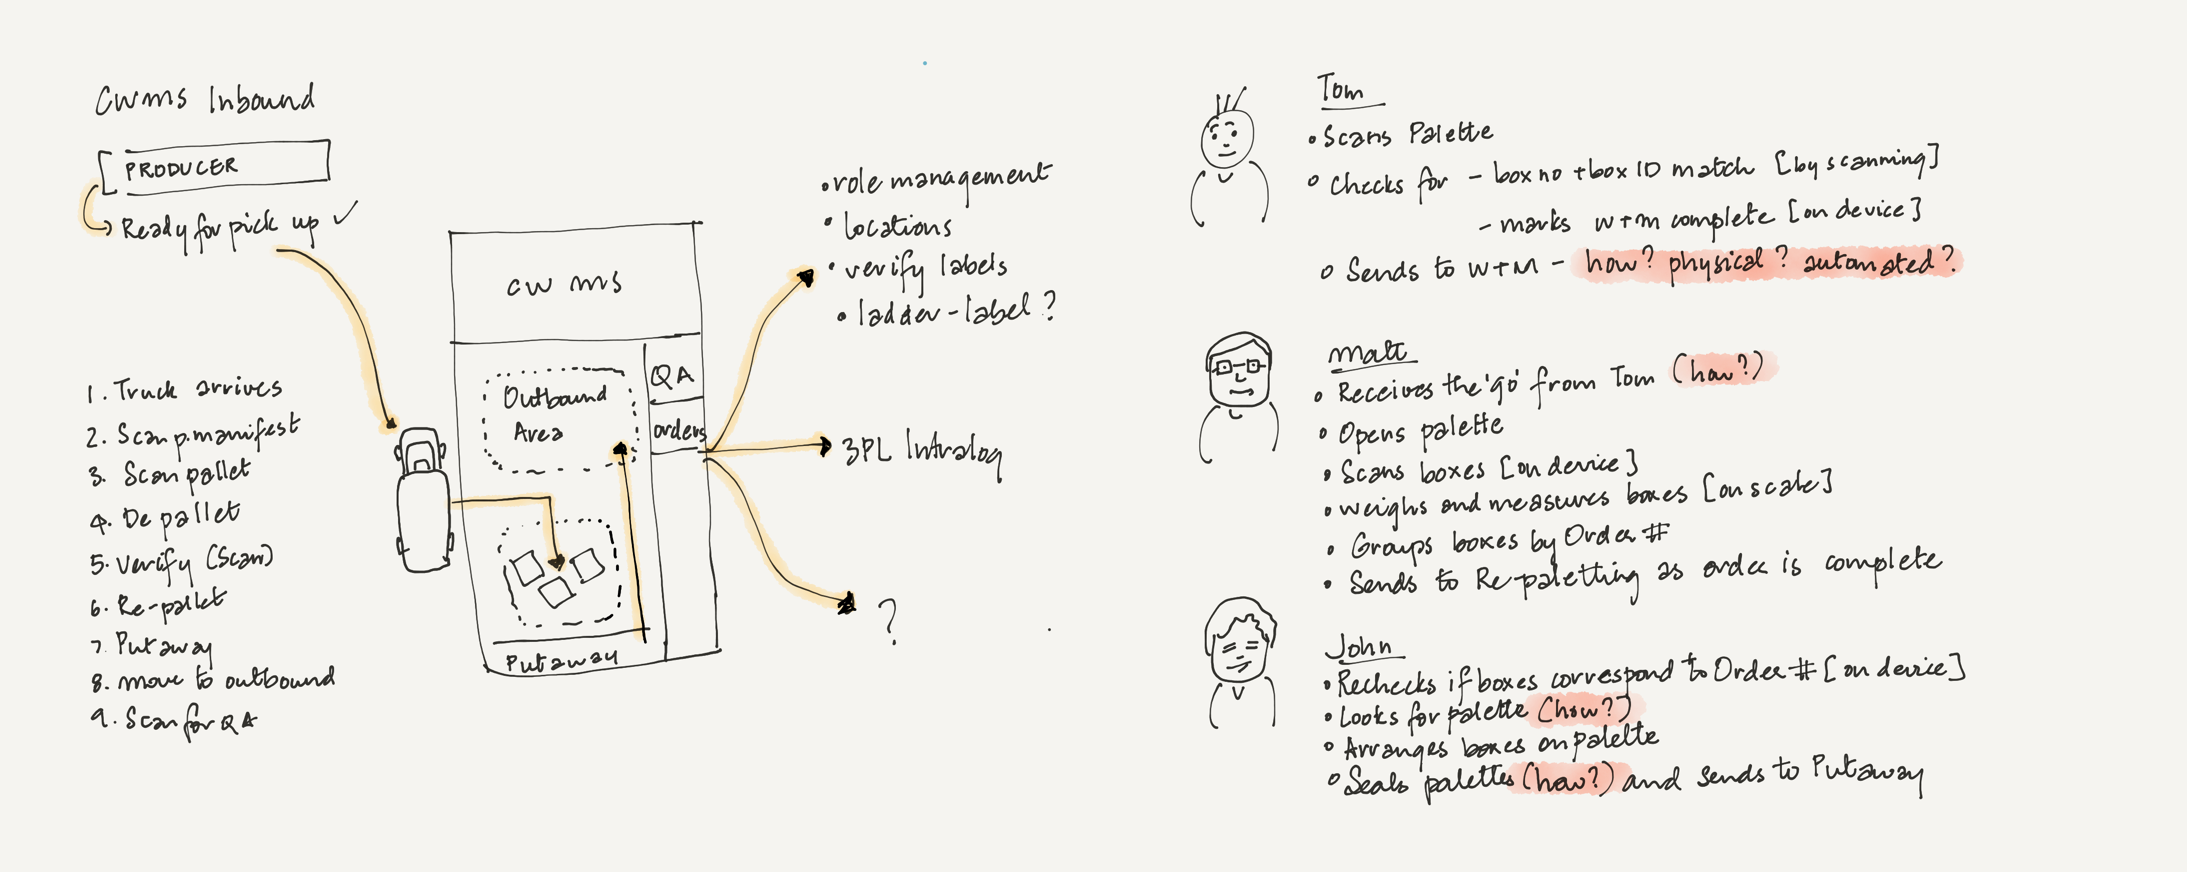 CWMS Inbound
PRODUCER
Ready for pick up ✓
1. Truck arrives
2. Scan p.manifest
3. Scan pallet
4. De pallet
5. Verify (Scan)
6. Re-pallet
7. Putaway
8. move to outbound
9. Scan for QA
CW MS
QA
orders
Outbound
Area
Putaway
• role management
• locations
• verify labels
• ladder-label?
3PL Intralog
?
Tom
• Scans Palette
• Checks for - box no + box ID match [by scanning]
- marks w+m complete [on device]
• Sends to W+M - how? physical? automated?
Matt
• Receives the 'go' from Tom (how?)
• Opens palette
• Scans boxes [on device]
• weighs and measures boxes [on scale]
• Groups boxes by Order #
• Sends to Re-paletting as order is complete
John
• Rechecks if boxes correspond to Order # [on device]
• Looks for palette (how?)
• Arranges boxes on palette
• Seals palettes (how?) and sends to Putaway